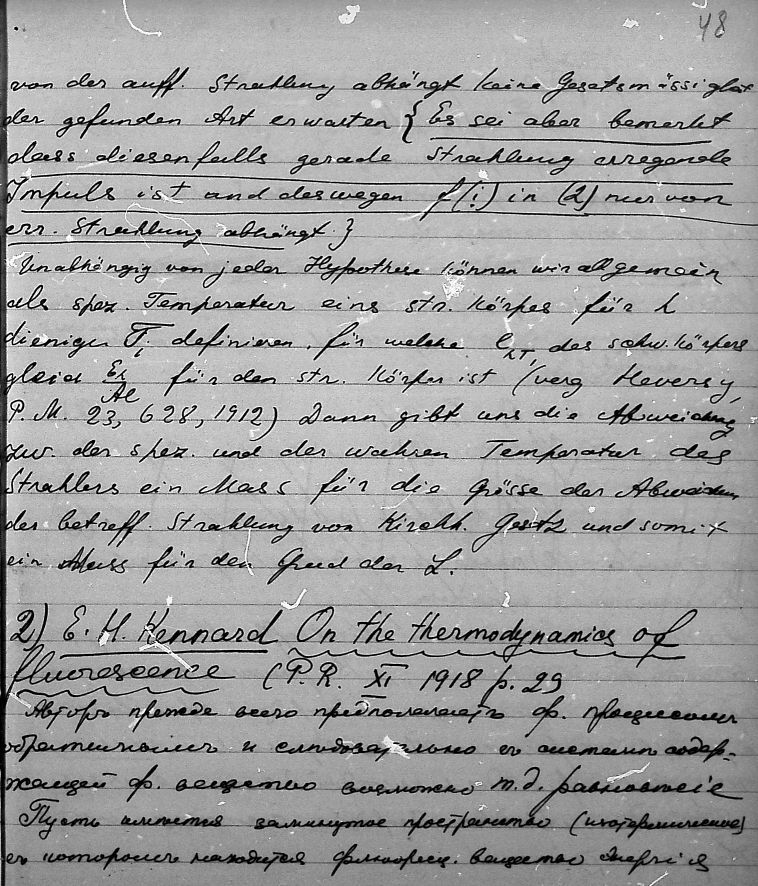 48
von der auff. Strahlung abhängt keine Gesetsmässigkeit
der gefunden Art erwarten {Es sei aber bemerkt
dass diesenfalls gerade Strahlung erregende
Impuls ist und deswegen f(i) in (2) nur von
err. Strahlung abhängt.}
Unabhängig von jeder Hypothese können wir allgemein
als spez. Temperatur eins str. Körpes für λ
dienige T₁ definieren, für welche e des schw. Körpers
gleich für den str. Körper ist (verg Hevesy,
P. M. 23, 628, 1912) Dann gibt uns die Abweichung
zw. der spez. und der wahren Temperatur des
Strahlers ein Mass für die Grösse der Abweichun
der betreff. Strahlung von Kirchh. Gesetz und somit
ein Mass für den Grad der L.
2) E. H. Kennard On the thermodynamics of
fluorescence (P. R. XI 1918 p. 29
Авторъ прежде всего предполагаетъ ф. процессъ
обратимымъ и слѣдовательно въ системѣ содер-
жащей ф. вещество возможно т.д. равновѣсіе
Пусть имѣется замкнутое пространство (изотермическое)
въ которомъ находится флюоресц. вещество Энергія